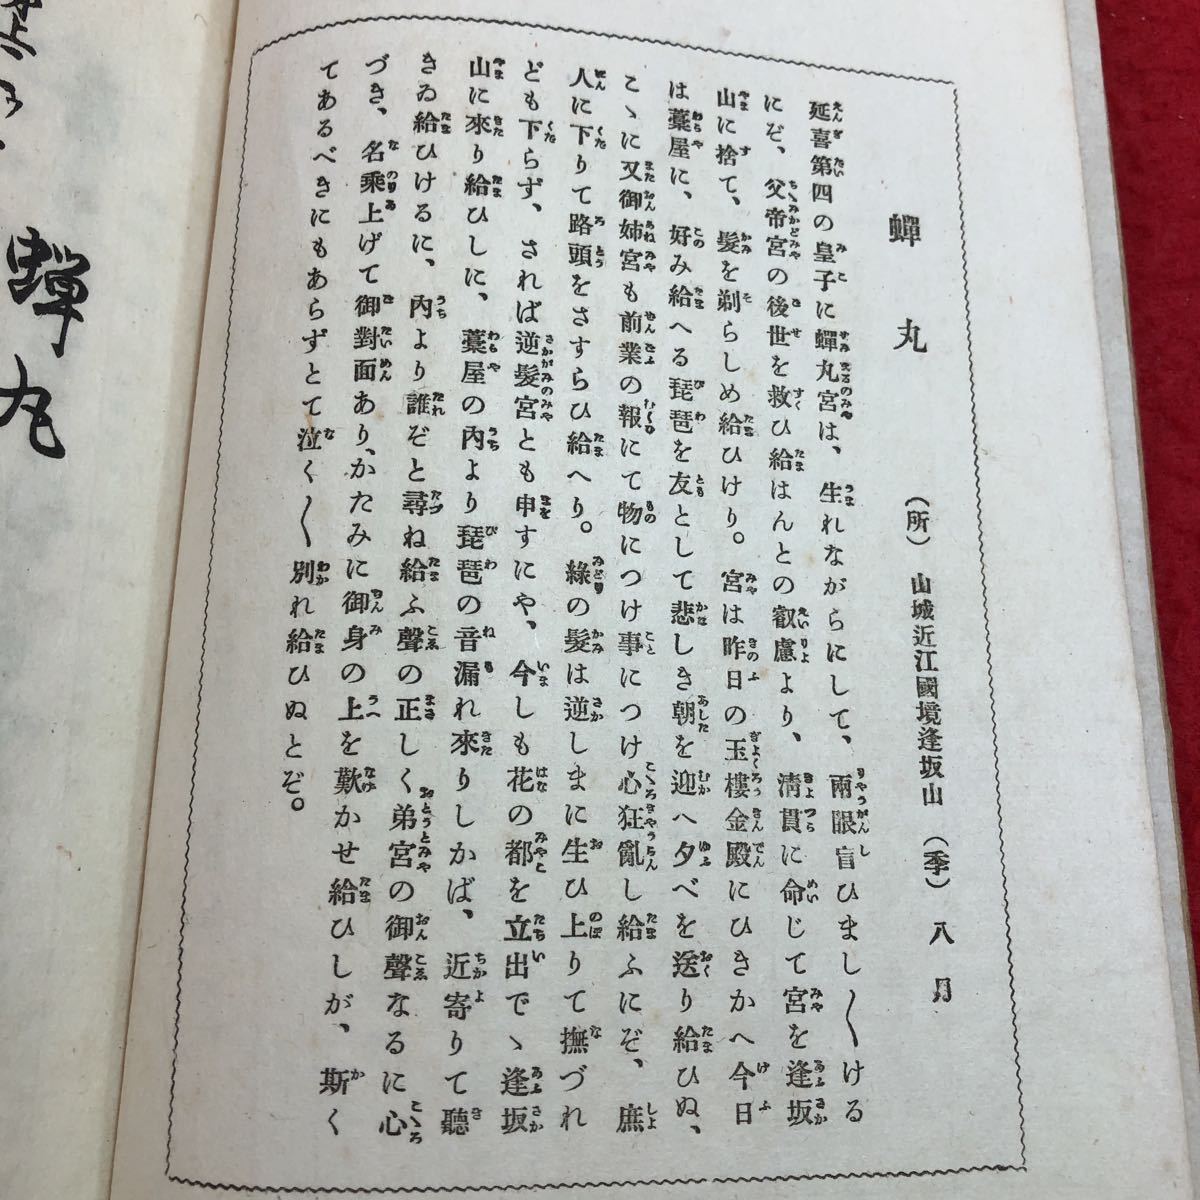 蟬丸
(所) 山城近江國境逢坂山 (季) 八月
延喜第四の皇子に蟬丸宮は、生れながらにして、兩眼盲ひまし〱ける
にぞ、父帝宮の後世を救ひ給はんとの叡慮より、淸貫に命じて宮を逢坂
山に捨て、髮を剃らしめ給ひけり。宮は昨日の玉樓金殿にひきかへ今日
は藁屋に、好み給へる琵琶を友として悲しき朝を迎へ夕べを送り給ひぬ、
こゝに又御姉宮も前業の報にて物につけ事につけ心狂亂し給ふにぞ、庶
人に下りて路頭をさすらひ給へり。綠の髮は逆しまに生ひ上りて撫づれ
ども下らず、されば逆髮宮とも申すにや、今しも花の都を立出でゝ逢坂
山に來り給ひしに、藁屋の內より琵琶の音漏れ來りしかば、近寄りて聽
きゐ給ひけるに、內より誰ぞと尋ね給ふ聲の正しく弟宮の御聲なるに心
づき、名乘上げて御對面あり、かたみに御身の上を歎かせ給ひしが、斯く
てあるべきにもあらずとて泣く〱別れ給ひぬとぞ。
蟬丸